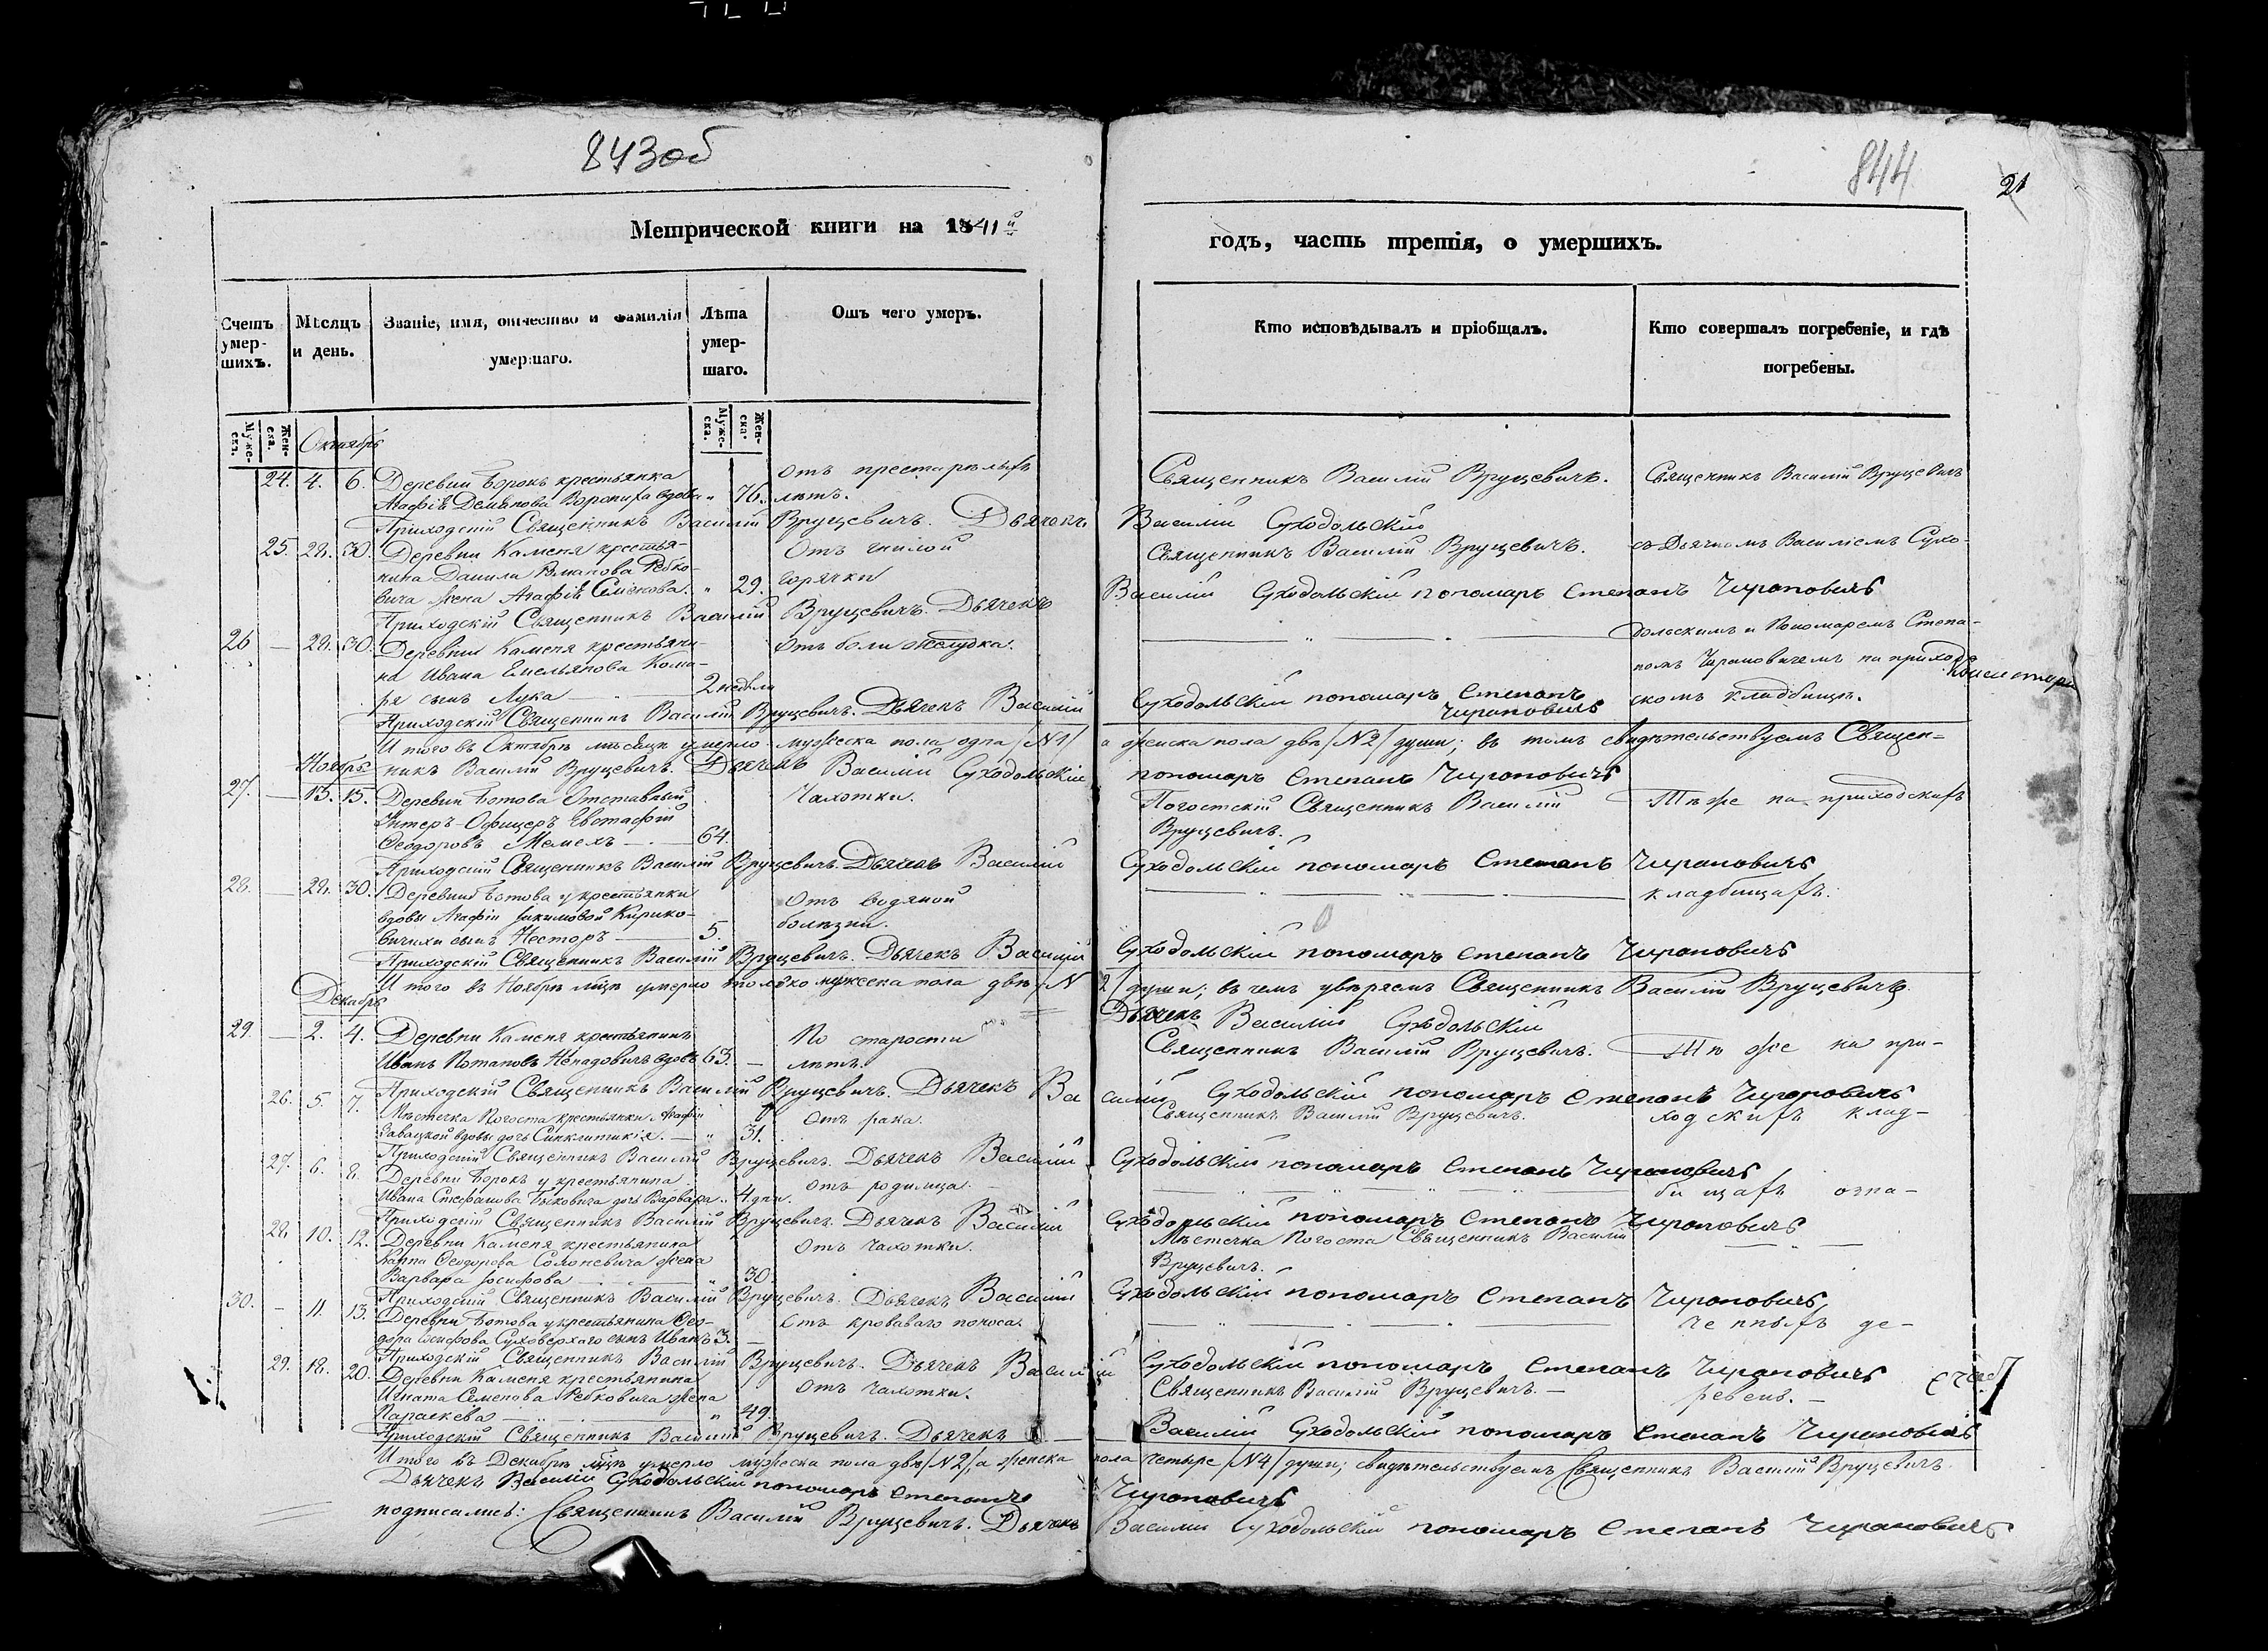 843об
844
21
Метрической книги на 1841й
годъ, часть третія, о умершихъ.
Счетъ умер-шихъ.
Мѣсяцъ и день.
Званіе, имя, отчество и фамилія умершаго.
Лѣта умер-шаго.
Отъ чего умеръ.
Кто исповѣдывалъ и пріобщалъ.
Кто совершалъ погребеніе, и гдѣ погребены.
Муже-скъ.
Жен-ска.
Муже-ска.
Жен-ска.
Октябрь
24. 4. 6. Деревни Борокъ крестьянка отъ престарѣлыхъ Священникъ Василій Вруцевичъ. Священникъ Василій Вруцевичъ
Агафія Демьянова вдова " 76. лѣтъ.
Приходскій Священникъ Василій Вруцевичъ. Дьячекъ Василій Суходольскій
25. 28. 30. Деревни Каменя крестья- Отъ гнилой Священникъ Василій Вруцевичъ. съ Дьячкомъ Василіемъ Сухо-
нина Данила Романова Ребко- горячки
вича жена Агафія Семенова. " 29.
Приходскій Священникъ Василій Вруцевичъ. Дьячекъ Василій Суходольскій пономарь Степанъ Чирановичъ
26 — 28. 30. Деревни Каменя крестьяни- Отъ боли желудка. — " — дольскимъ и Пономаремъ Степа-
на Ивана Емельянова Кома- номъ Чирановичемъ на приход
ра сынъ Лука — 2 недѣли скомъ кладбищѣ.
Приходскій Священникъ Василій Вруцевичъ. Дьячекъ Василій Суходольскій пономарь Степанъ Чирановичъ
И того въ Октябрѣ мѣсяцѣ умерло мужеска пола одна /N1/ а женска пола двѣ /N2/ души; въ томъ свидѣтельствуемъ Священ-
никъ Василій Вруцевичъ. Дьячекъ Василій Суходольскій пономарь Степанъ Чирановичъ
Ноябрь
27. — 13. 15. Деревни Ботова Отставный Чахотки. Погостскій Священникъ Василій Тѣ же на приходскихъ
Унтеръ-Офицеръ Евстафій Вруцевичъ.
Ѳеодоровъ — 64.
Приходскій Священникъ Василій Вруцевичъ. Дьячекъ Василій Суходольскій пономарь Степанъ Чирановичъ
28. — 28. 30. Деревни Ботова у крестьянки Отъ водяной — " — кладбищахъ.
вдовы Агафіи Якимовой Кирико- болѣзни.
вичихи сынъ Несторъ — 5.
Приходскій Священникъ Василій Вруцевичъ. Дьячекъ Василій Суходольскій пономарь Степанъ Чирановичъ
И того въ Ноябрѣ мѣцѣ умерло только мужеска пола двѣ /N 2/ души; въ чемъ увѣряемъ Священникъ Василій Вруцевичъ.
Дьячекъ Василій Суходольскій
Декабрь
29. — 2. 4. Деревни Каменя крестьянинъ По старости Священникъ Василій Вруцевичъ. Тѣ же на при-
Иванъ Потаповъ вдовъ 63. — лѣтъ.
Приходскій Священникъ Василій Вруцевичъ. Дьячекъ Василій Суходольскій пономарь Степанъ Чирановичъ
26. 5. 7. Мѣстечка Погоста крестьянки Агафіи Отъ рака. Священникъ Василій Вруцевичъ. ходскихъ клад-
вдовы дочь Синклитикія. — " 31.
Приходскій Священникъ Василій Вруцевичъ. Дьячекъ Василій Суходольскій пономарь Степанъ Чирановичъ
27. 6. 8. Деревни Борокъ у крестьянина отъ родимца. — " — бищахъ озна-
Ивана Стефанова Быковича дочь Варвара. " 4 дни.
Приходскій Священникъ Василій Вруцевичъ. Дьячекъ Василій Суходольскій пономарь Степанъ Чирановичъ
28. 10. 12. Деревни Каменя крестьянина Отъ чахотки. Мѣстечка Погоста Священникъ Василій — " —
Карпа Ѳеодорова Солоневича жена Вруцевичъ.
Варвара Іосифова — " 30.
Приходскій Священникъ Василій Вруцевичъ. Дьячекъ Василій Суходольскій пономарь Степанъ Чирановичъ
30. — 11. 13. Деревни Ботова у крестьянина Ѳео- Отъ кроваваго поноса. — " — ченныхъ де-
дора Іосифова Суховерхаго сынъ Иванъ 3. —
Приходскій Священникъ Василій Вруцевичъ. Дьячекъ Василій Суходольскій пономарь Степанъ Чирановичъ
29. 18. 20. Деревни Каменя крестьянина Отъ чахотки. Священникъ Василій Вруцевичъ. — ревень. —
Игната Семенова Ребковича жена
Параскева — " 49.
Приходскій Священникъ Василій Вруцевичъ. Дьячекъ Василій Суходольскій пономарь Степанъ Чирановичъ
И того въ Декабрѣ мѣцѣ умерло мужеска пола двѣ /N2/, а женска пола четыре /N4/ души; свидѣтельствуемъ Священникъ Василій Вруцевичъ
Дьячекъ Василій Суходольскій пономарь Степанъ Чирановичъ
подписались: Священникъ Василій Вруцевичъ. Дьячекъ Василій Суходольскій пономарь Степанъ Чирановичъ